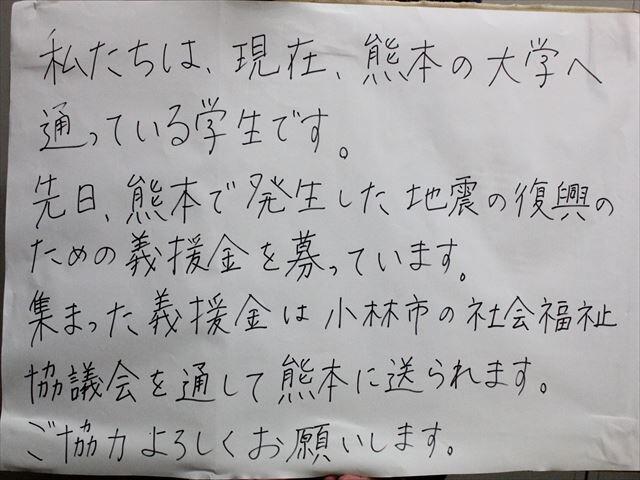 私たちは、現在、熊本の大学へ
通っている学生です。
先日、熊本で発生した地震の復興の
ための義援金を募っています。
集まった義援金は小林市の社会福祉
協議会を通して熊本に送られます。
ご協力よろしくお願いします。